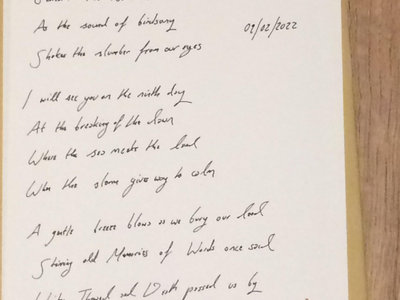 As the sound of birdsong
09/02/2022
Shakes the slumber from our eyes
I will see you on the ninth day
At the breaking of the dawn
Where the sea meets the land
When the storm gives way to calm
A gentle breeze blows as we bury our load
Stirring old Memories of Words once said
passed us by